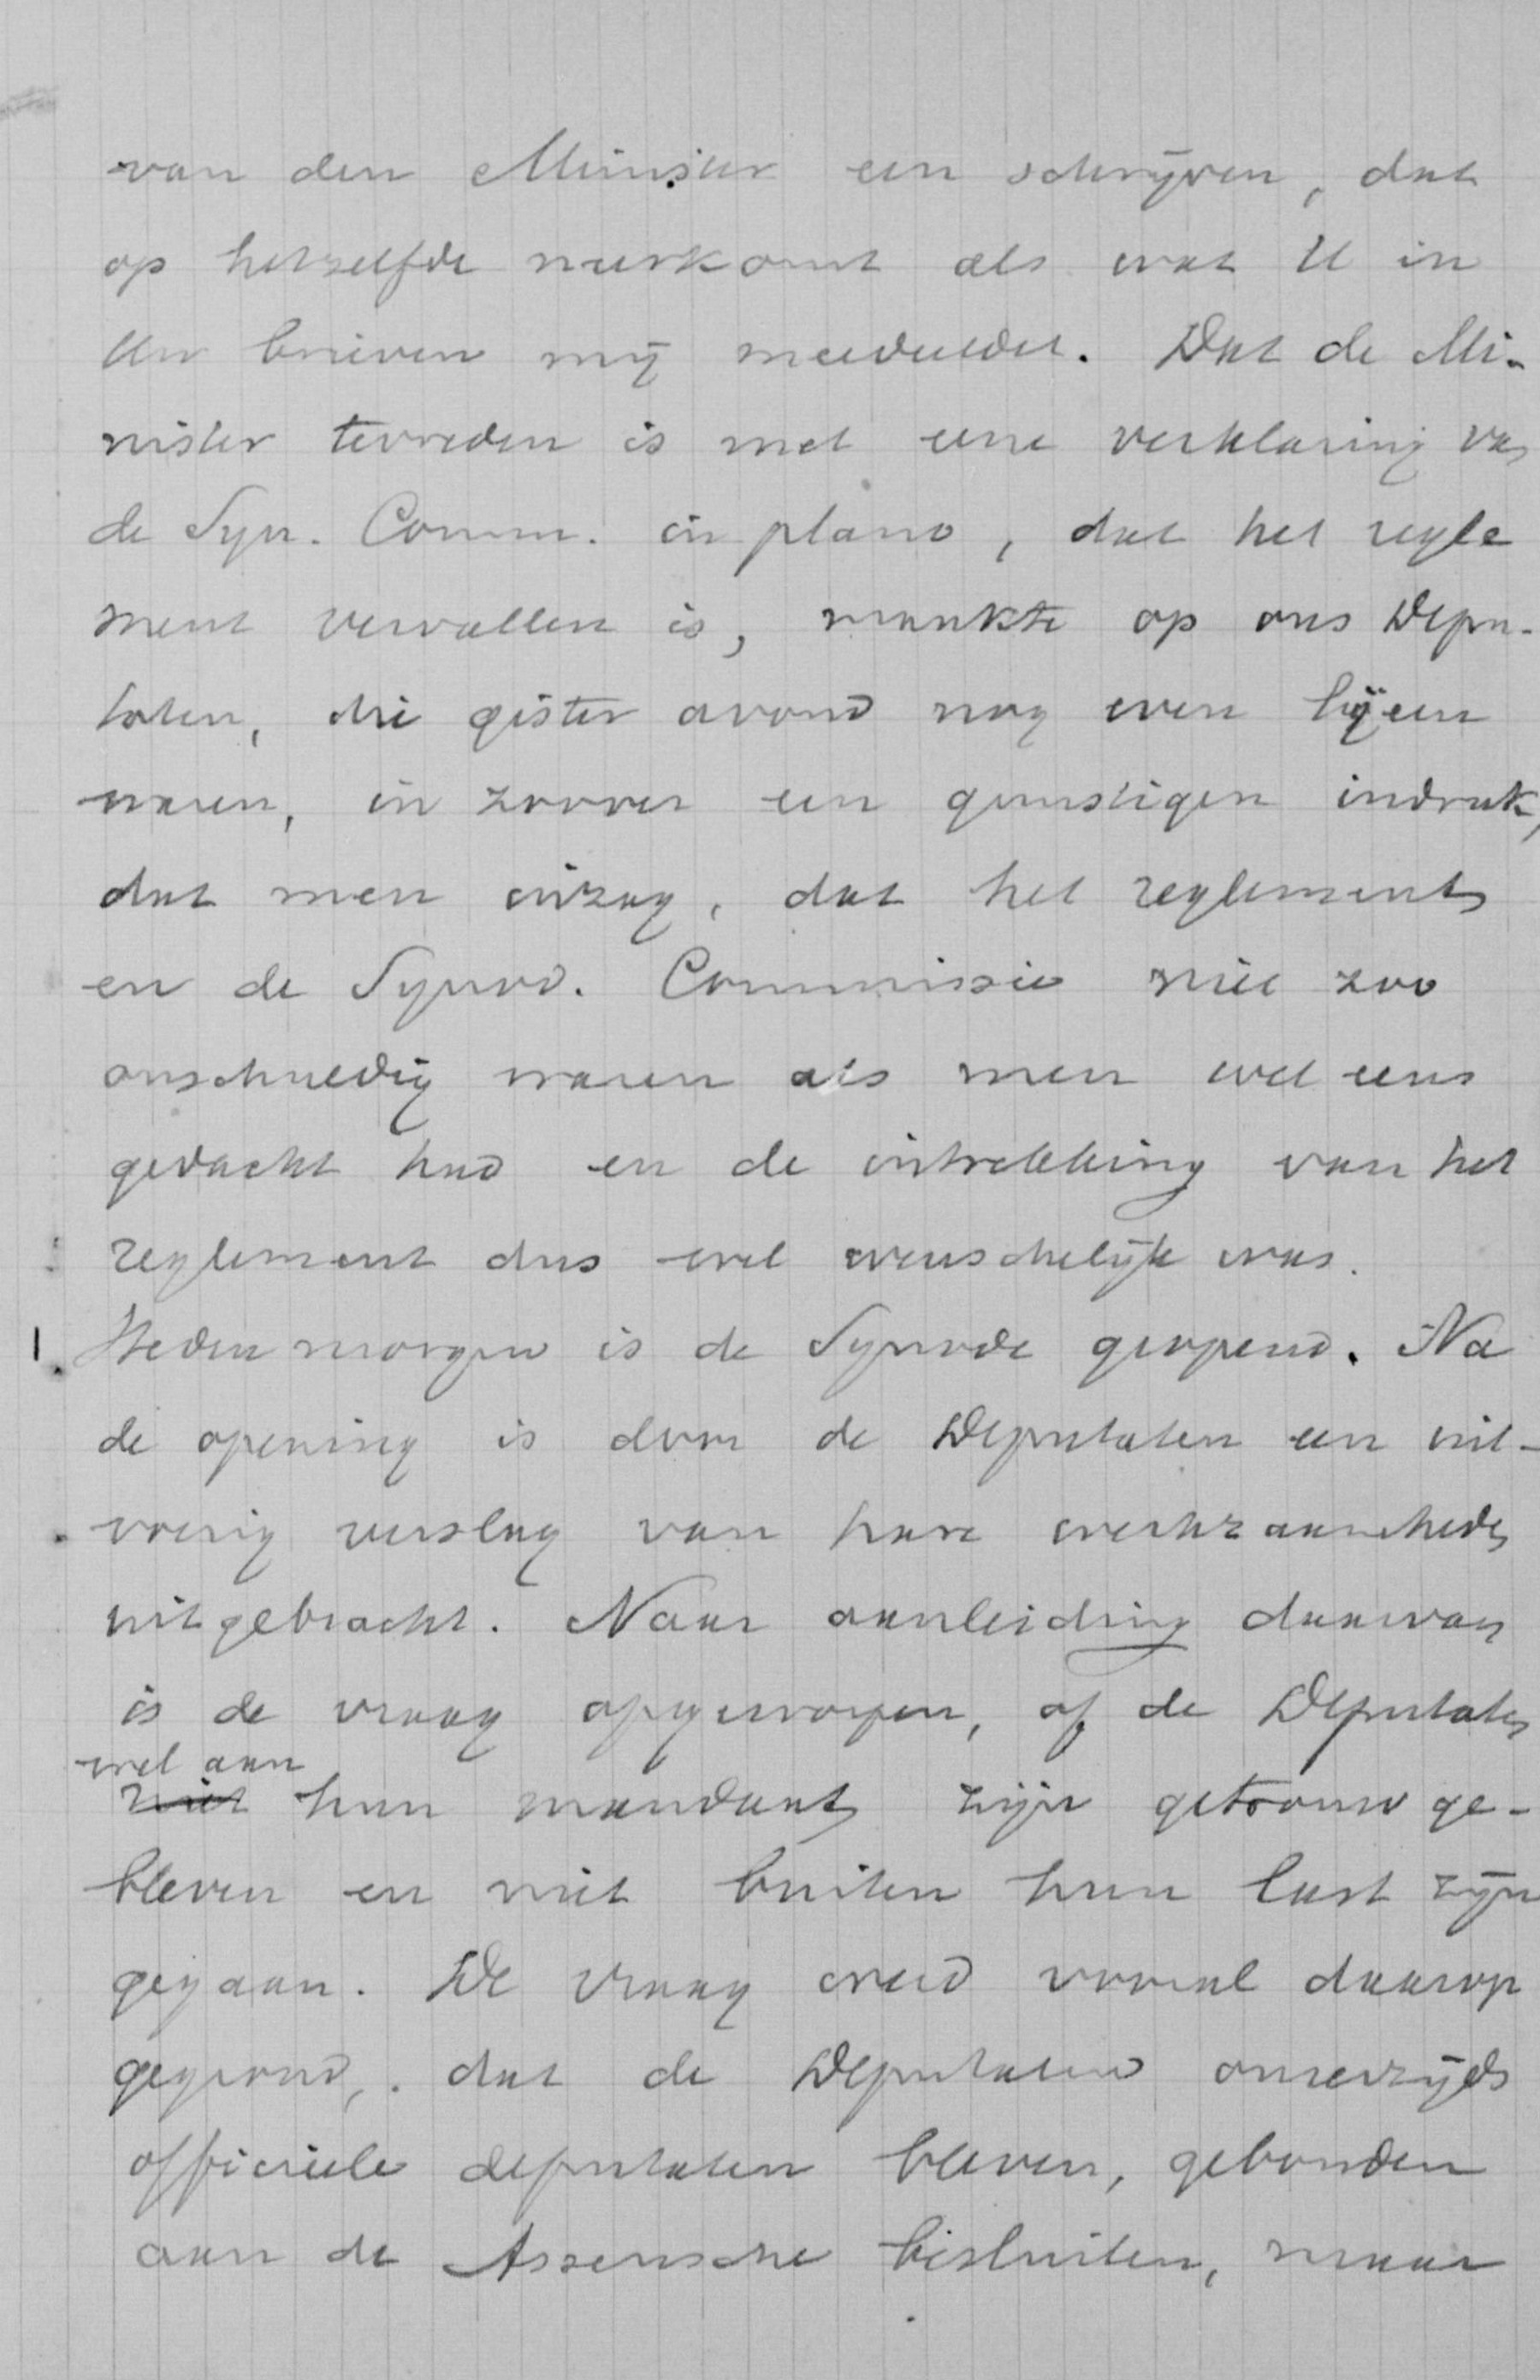 van den Minister een schrijven, dat
op hetzelfde neerkomt als wat U in
Uw brieven mij meedeeldet. Dat de Mi-
nister tevreden is met eene verklaring van
de Syn. Comm. in plano, dat het regle
ment vervallen is, maakte op ons Depu-
taten, die gister avond nog even bijeen
waren, in zoover een gunstigen indruk,
dat men inzag, dat het reglement
en de Synod. Commissie niet zoo
onschuldig waren als men wel eens
gedacht had en de intrekking van het
reglement dus wel wenschelijk was.
Heden morgen is de Synode geopend. Na
de opening is door de Deputaten een uit-
voerig verslag van hare werkzaamheden
uitgebracht. Naar aanleiding daarvan
is de vraag opgeworpen, of de Deputaten
wel aan
niet hun mandaat zijn getrouw ge-
bleven en niet buiten hun last zijn
gegaan. De vraag werd vooral daarop
gegrond, dat de Deputaten onzerzijds
officieele deputaten bleven, gebonden
aan de Assensche besluiten, maar